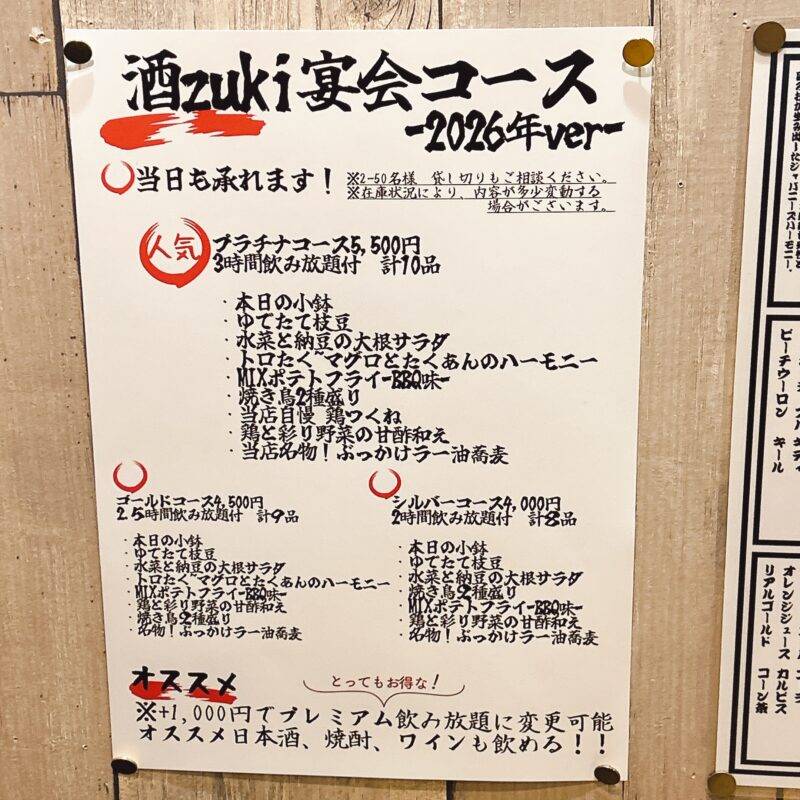 酒zuki宴会コース
-2026年ver-
当日も承れます！
※2-50名様 貸し切りもご相談ください。
※在庫状況により、内容が多少変動する
場合がございます。
人気
プラチナコース5,500円
3時間飲み放題付 計10品
・本日の小鉢
・ゆでたて枝豆
・水菜と納豆の大根サラダ
・トロたく~マグロとたくあんのハーモニー
・MIXポテトフライ-BBQ味-
・焼き鳥2種盛り
・当店自慢 鶏つくね
・鶏と彩り野菜の甘酢和え
・当店名物！ぶっかけラー油蕎麦
ゴールドコース4,500円
2.5時間飲み放題付 計9品
・本日の小鉢
・ゆでたて枝豆
・水菜と納豆の大根サラダ
・トロたく~マグロとたくあんのハーモニー
・MIXポテトフライ-BBQ味-
・鶏と彩り野菜の甘酢和え
・焼き鳥2種盛り
・名物！ぶっかけラー油蕎麦
シルバーコース4,000円
2時間飲み放題付 計8品
・本日の小鉢
・ゆでたて枝豆
・水菜と納豆の大根サラダ
・焼き鳥2種盛り
・MIXポテトフライ-BBQ味-
・鶏と彩り野菜の甘酢和え
・名物！ぶっかけラー油蕎麦
オススメ
とってもお得な！
※+1,000円でプレミアム飲み放題に変更可能
オススメ日本酒、焼酎、ワインも飲める！！
ジャパニーズハーモニー、
ピーチウーロン キール
オレンジジュース カルピス
リアルゴールド コーン茶